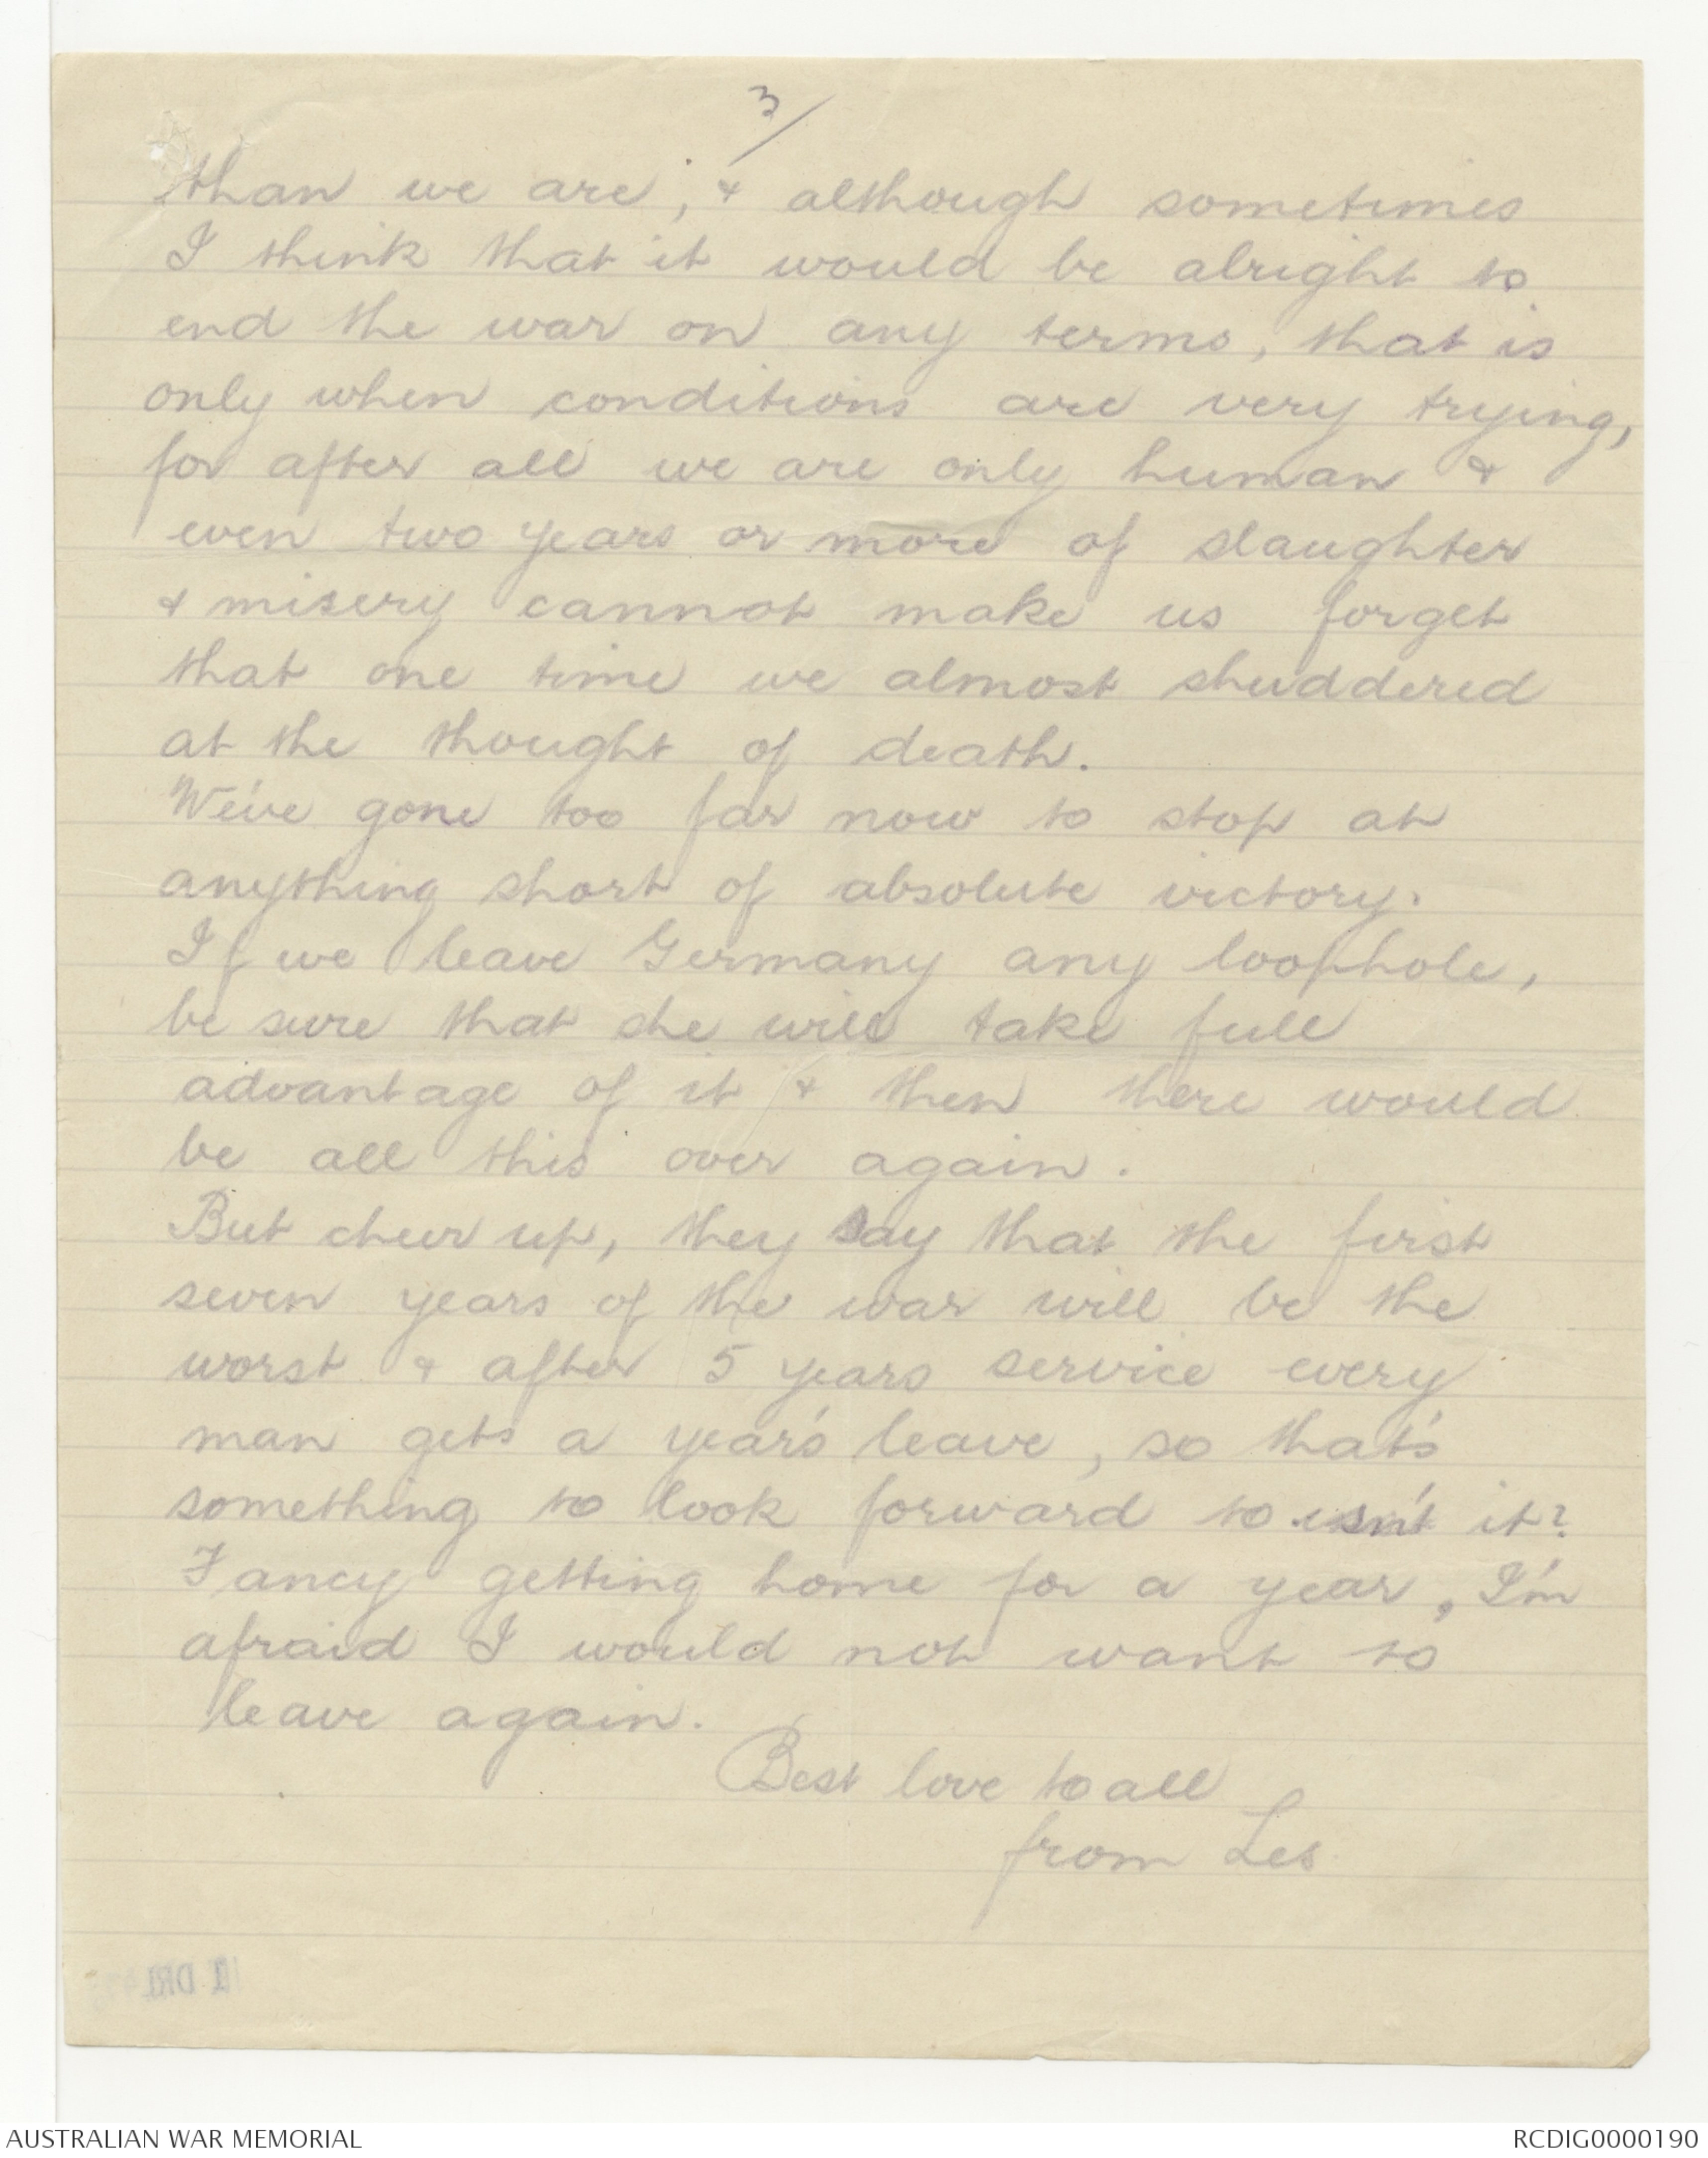 3/
than we are, & although sometimes
I think that it would be alright to
end the war on any terms, that is
only when conditions are very trying,
for after all we are only human &
even two years or more of slaughter
& misery cannot make us forget
that one time we almost shuddered
at the thought of death.
We've gone too far now to stop at
anything short of absolute victory.
If we leave Germany any loophole,
be sure that she will take full
advantage of it & then there would
be all this over again.
But cheer up, they say that the first
seven years of the war will be the
worst & after 5 years service every
man gets a year's leave, so that's
something to look forward to isn't it?
Fancy getting home for a year, I'm
afraid I would not want to
leave again.
Best love to all
from Les
AUSTRALIAN WAR MEMORIAL
RCDIG0000190